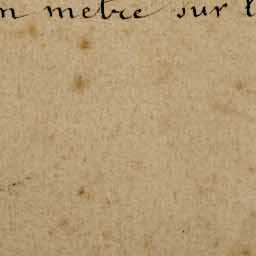 n metre sur l